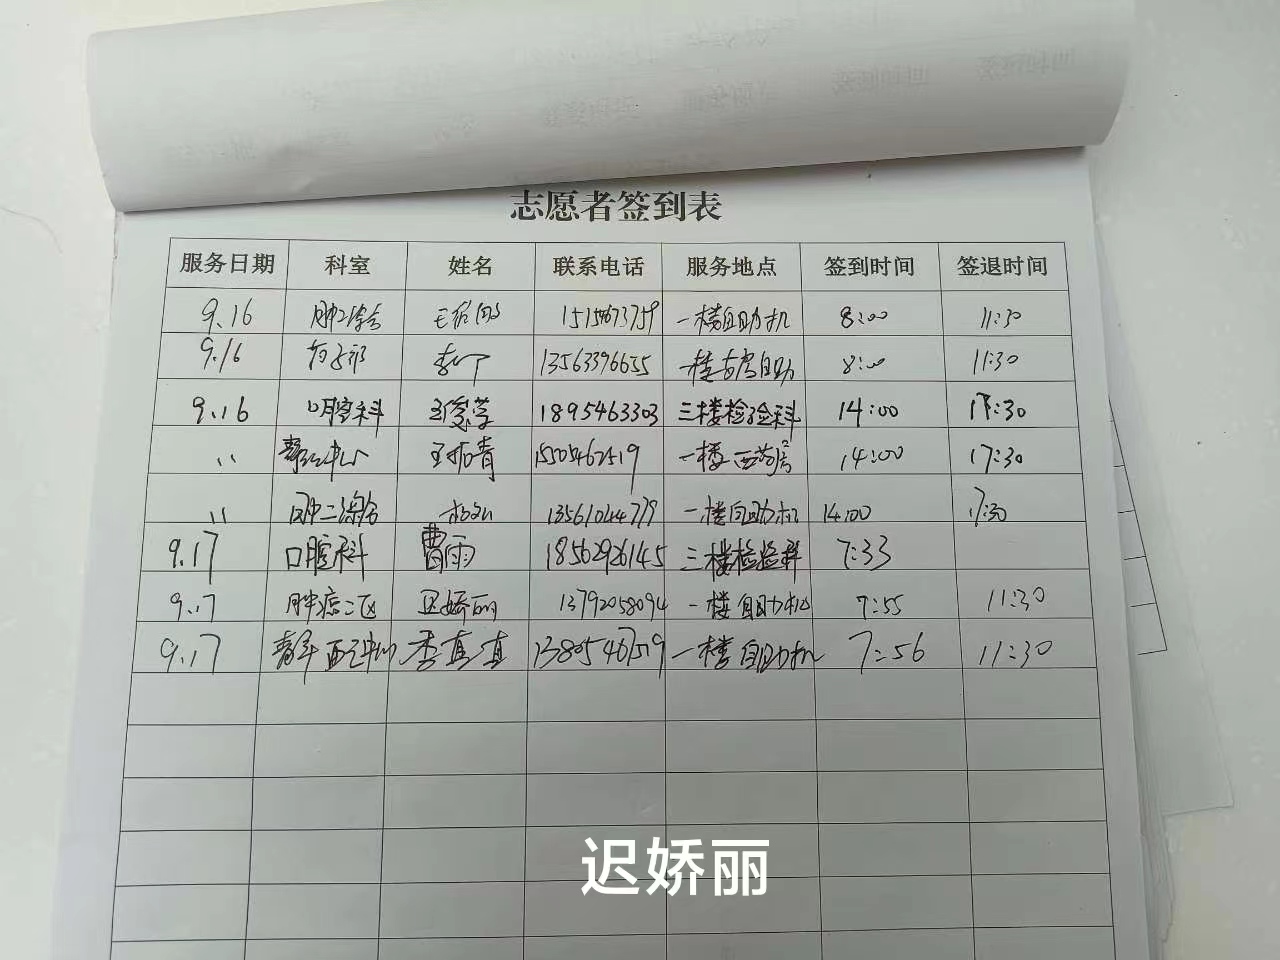 志愿者签到表
服务日期 科室 姓名 联系电话 服务地点 签到时间 签退时间
9.16 一楼自助机 8:00 11:30
9.16 13563396655 一楼 自助 8:00 11:30
9.16 口腔科 1895463303 三楼检验科 14:00 17:30
〃 15505462519 一楼西药房 14:00 17:30
〃 13561044779 一楼自助机 14:00 17:30
9.17 口腔科 曹雨 18562926145 三楼检验科 7:33
9.17 肿瘤二区 迟娇丽 13792058094 一楼自助机 7:55 11:30
9.17 李真真 13805467519 一楼自助机 7:56 11:30
迟娇丽